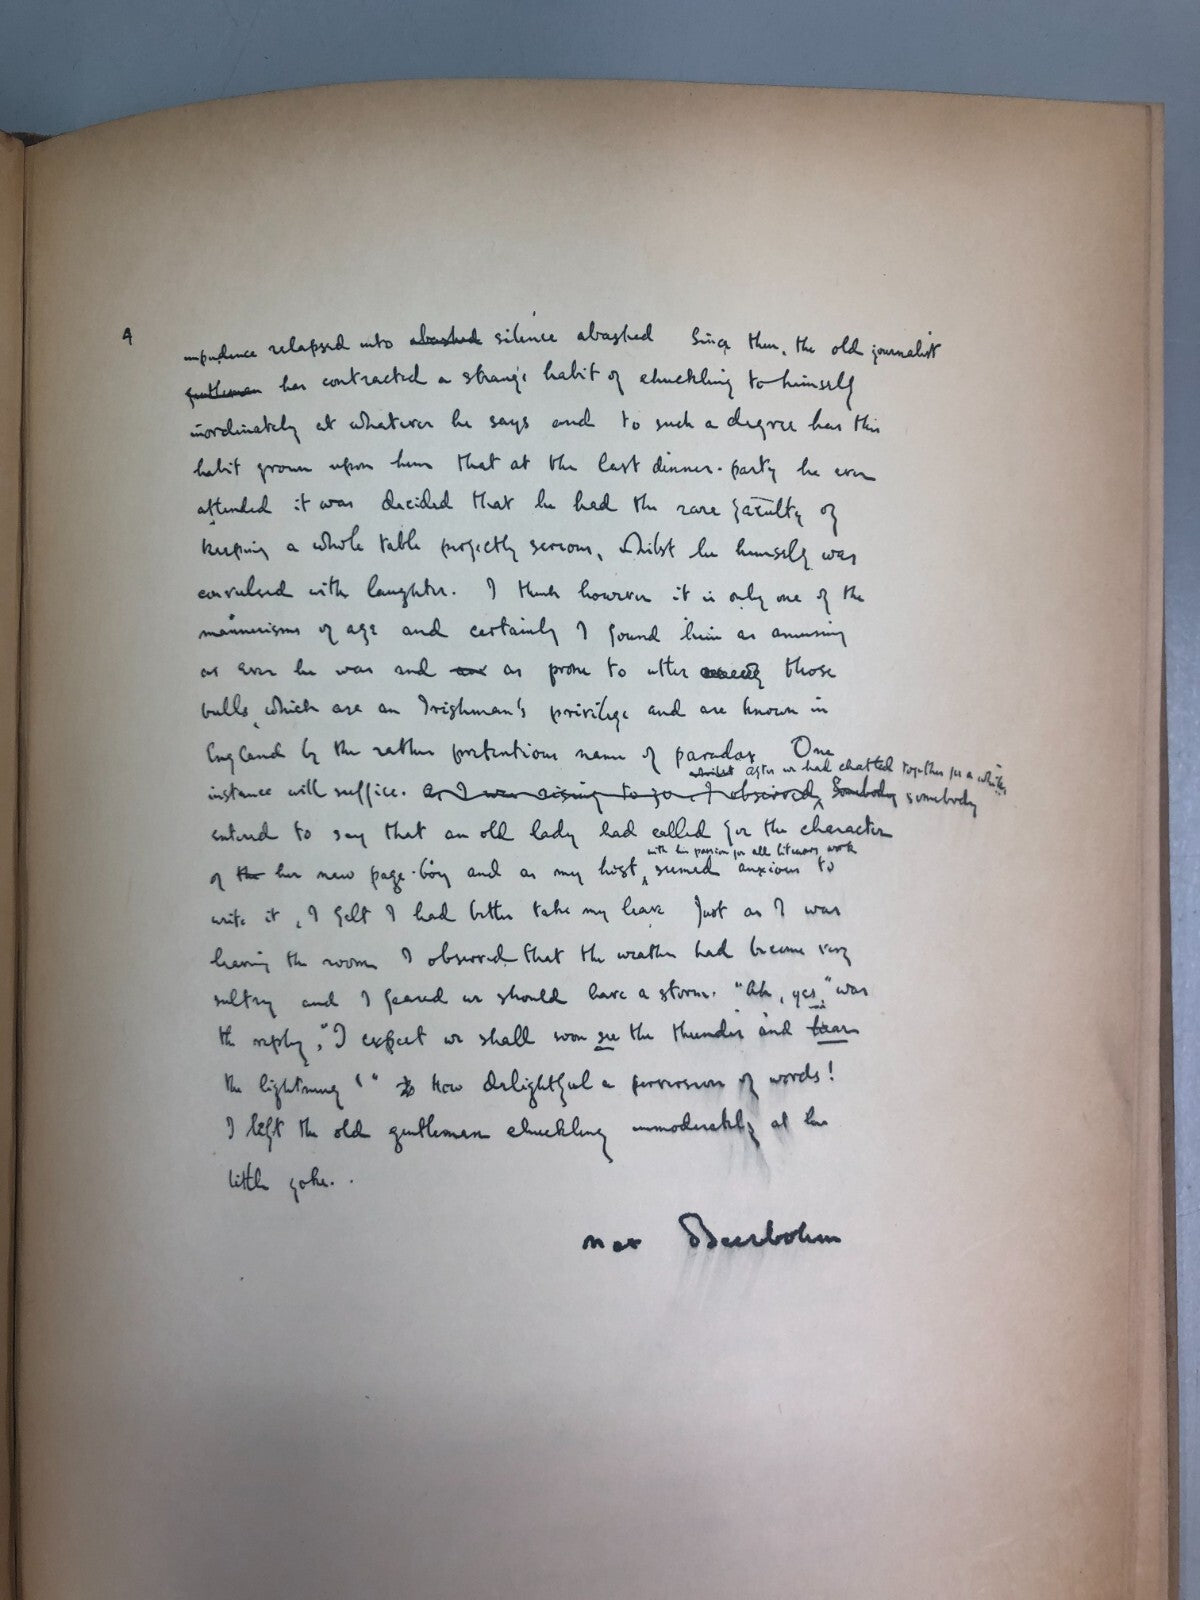 4
impudence relapsed into abashed silence abashed Since then, the old journalist
gentleman has contracted a strange habit of chuckling to himself
inordinately at whatever he says and to such a degree has this
habit grown upon him that at the last dinner-party he ever
attended it was decided that he had the rare faculty of
keeping a whole table perfectly serious, whilst he himself was
convulsed with laughter. I think however it is only one of the
mannerisms of age and certainly I found him as amusing
as ever he was and as prone to utter those
bulls, which are an Irishman's privilege and are known in
England by the rather pretentious name of paradox One
whilst after we had chatted together for a while,
instance will suffice. As I was rising to go, I observed, Somebody somebody
entered to say that an old lady had called for the character
with his passion for all literary work
of the her new page-boy and as my host seemed anxious to
write it, I felt I had better take my leave Just as I was
leaving the room I observed that the weather had become very
sultry and I feared we should have a storm. "Ah, yes," was
the reply, "I expect we shall soon see the thunder and hear
the lightning!" How delightful a perversion of words!
I left the old gentleman chuckling immoderately at his
little joke.
Max Beerbohm